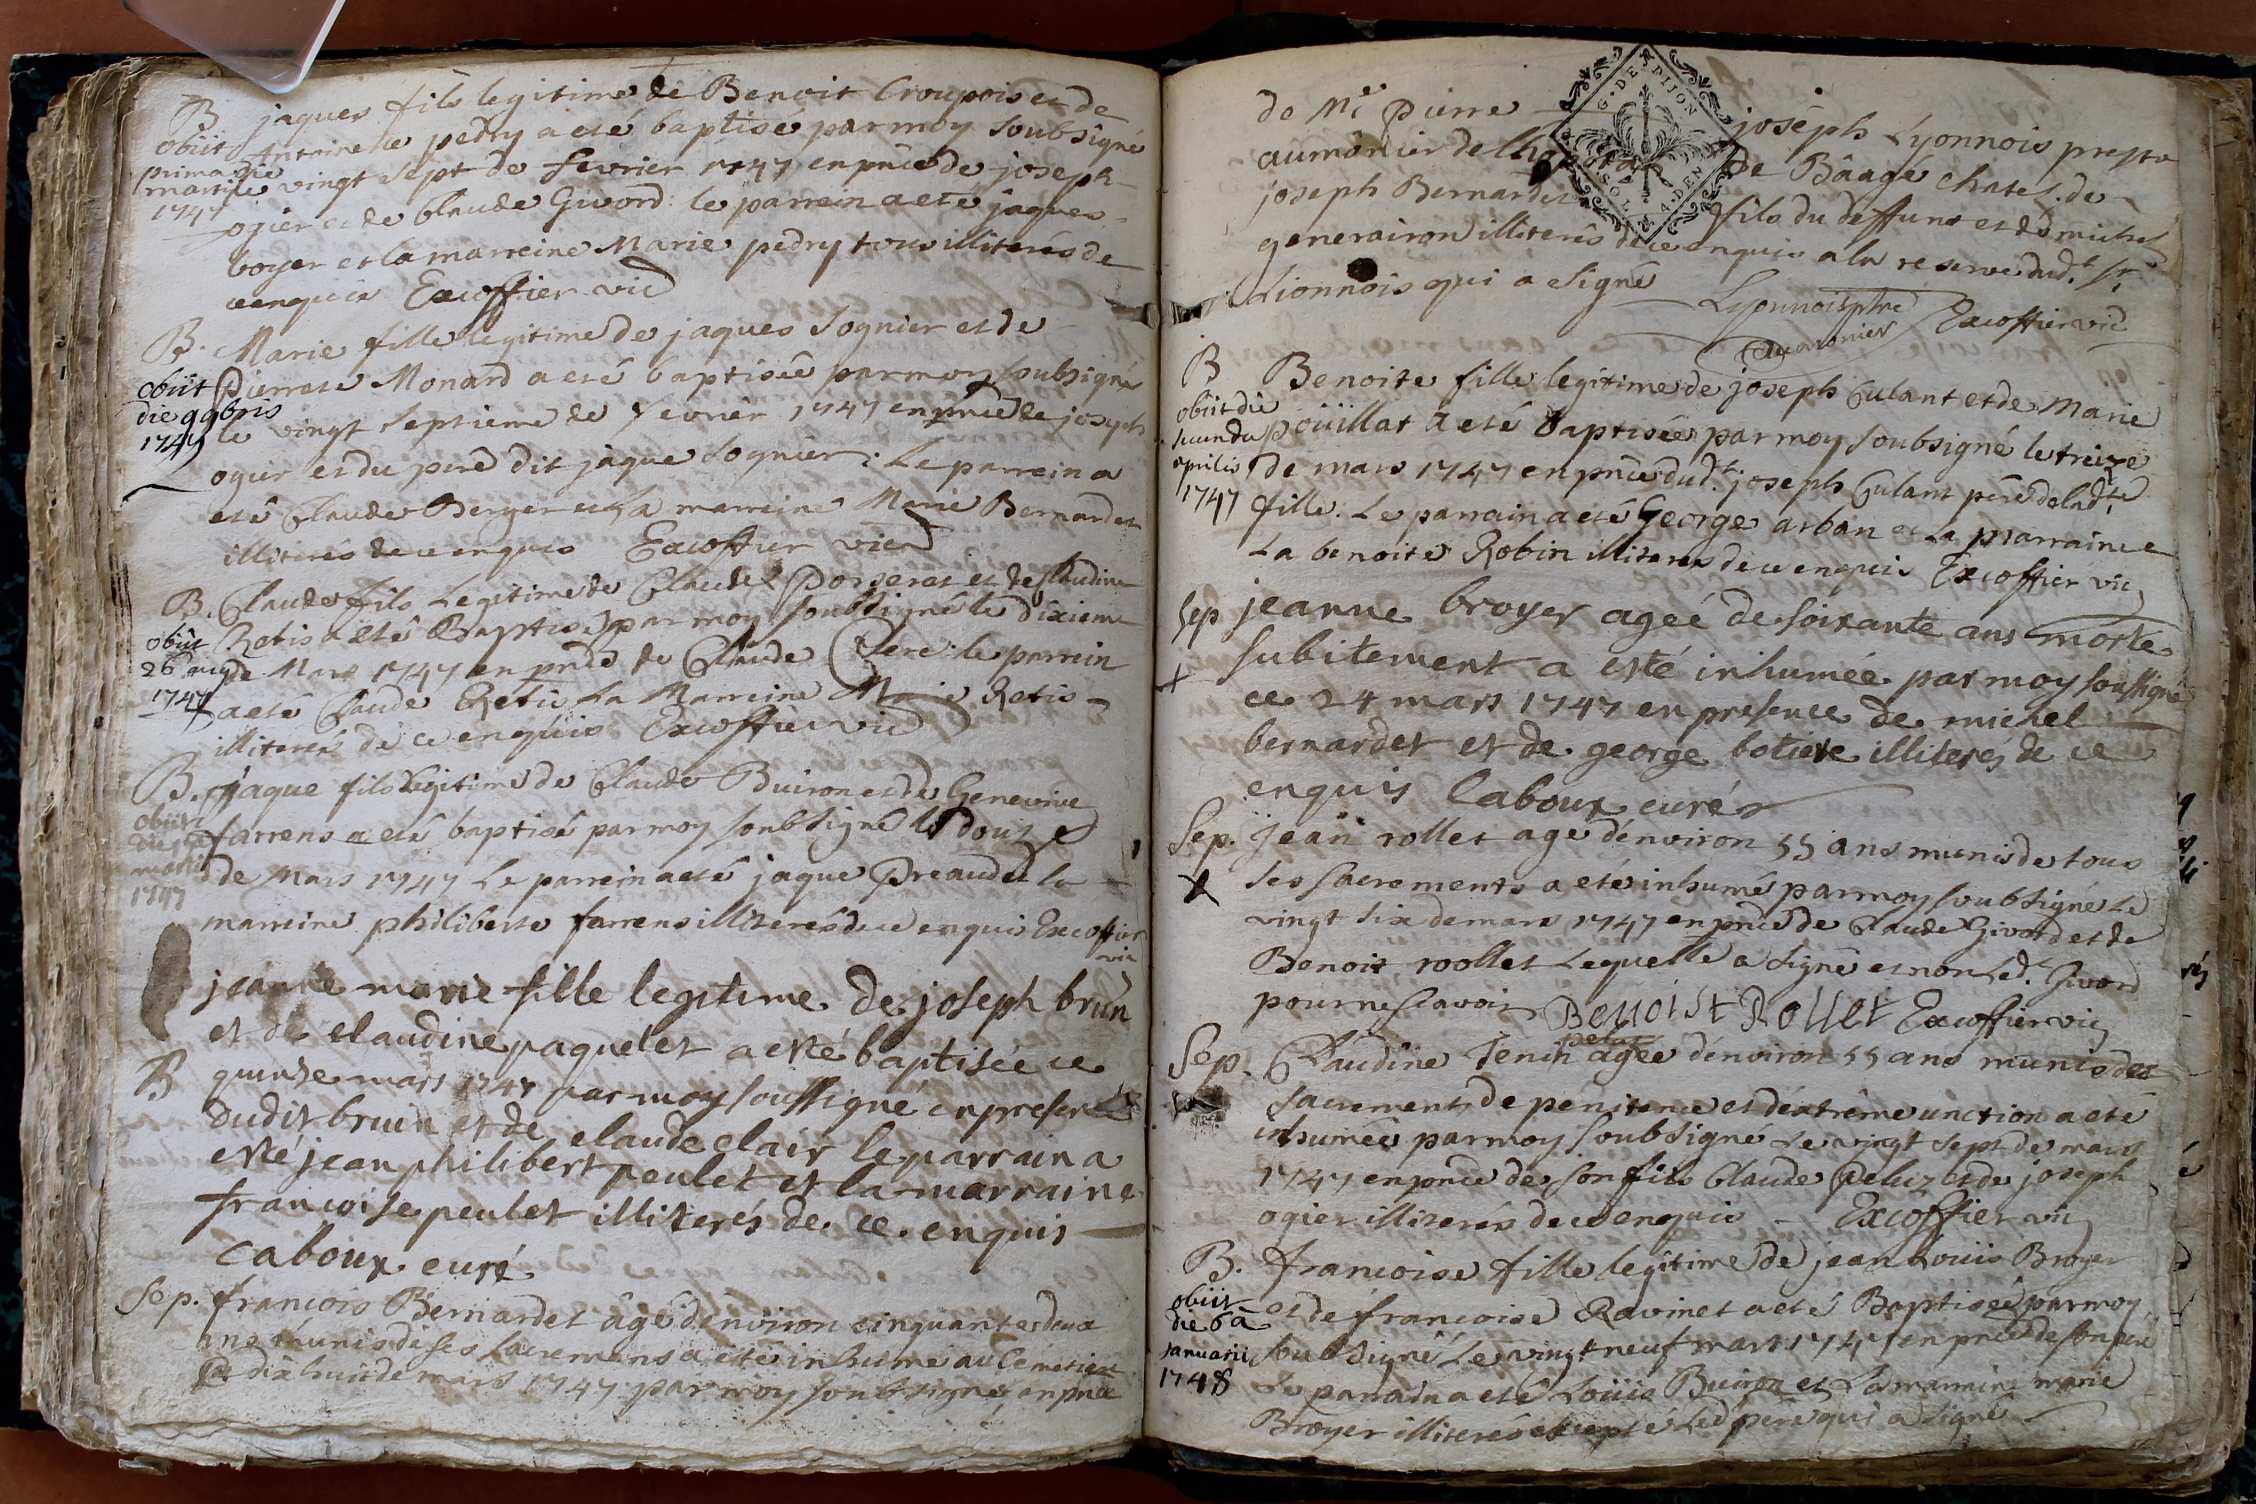 B jaques fils legitime de Benoit Croupois et de
obiit Antoinette pedry a eté baptisé par moy soubsigné
prima die
martii vingt sept de fevrier 1747 en pnce de joseph
1747
ogier et de Claude Givord: le parrein a eté jaques
boyer et la marreine Marie pedry tous illiterés de
ce enquis Excoffier vic
B. Marie fille legitime de jaques Sognier et de
obiit Pierrete Monard a eté baptisée par moy soubsigné
die 9 9bris
1747 le vingt septieme de fevrier 1747 en pnce de joseph
ogier et du pere dit jaque Sognier: Le parrein a
eté Claude Berger et La marreine Marie Bernardet
illiterés de ce enquis Excoffier vic
B. Claude fils Legitime de Claude Porseras et de Claudine
obiit Retis a eté Baptisé par moy soubsigné le dixieme
26 aug de Mars 1747 en pnce de Claude Clerc: le parrein
1747 a eté Claude Retis La Marreine Marie Retis
illiterés de ce enquis Excoffier vic
B. jaque fils Legitime de Claude Buiron et de Genevive
obiit farrens a eté baptisé par moy soubsigné le douze
martii de Mars 1747 Le parrein a eté jaque Preaud et la
1747
marreine philiberte farrens illiterés de ce enquis Excoffier
vic
jeanne marie fille legitime de joseph brun
et de claudine paquelet a esté baptisée ce
B quinze mars 1747 par moy soussigné en presence
dudit brun et de claude clair le parrain a
esté jean philibert peulet et la marraine
francoise peulet illiterés de ce enquis
Caboux curé
Sep. françois Bernardet âgé d'environ cinquante deux
ans munis de ses sacremens a eté inhumé au Cemetiere
le dix huit de mars 1747 par moy soubsigné en pnce
de Mr Pierre joseph Lyonnois prestre
aumônier de de Bâagé chatel. de
joseph Bernardet fils du deffunt et de michel
generairon illiterés de ce enquis a la reserve dud.t Sr
Lionnois qui a signé
Lyonnois ptre Excoffier vic
Aumonier
G. DE DIJON
B Benoite fille legitime de joseph Culant et de Marie
obiit die
secunda poüillat a eté baptisée par moy soubsigné le treize
aprilis de mars 1747 en pnce dud.t joseph Culant père de lad.te
1747 fille. Le parrain a eté George arban et La marraine
La benoite Robin illiterés de ce enquis Excoffier vic
Sep jeanne broyer ageé de soixante ans morte
subitement a esté inhumée par moy soussigné
ce 24 mars 1747 en presence de michel
bernardet et de george botiere illiterés de ce
enquis Caboux curé
Sep. jean rollet age d'environ 55 ans munis de tous
ses sacrements a eté inhumé par moy soubsigné Le
vingt six de mars 1747 en pnce de Claude Givord et de
Benoit roollet Lequelle a signé et non Led.t Givord
pour ne scavoir Benoist Rollet Excoffier vic
Sep. Claudine Tenin agée d'environ 55 ans munis des
sacrements de penitence et d'extrême unction a eté
inhumée par moy soubsigné Le vingt sept de mars
1747 en pnce de son fils Claude Peluz et de joseph
ogier illiterés de ce enquis Excoffier vic
B. francoise fille legitime de jean Louis Broyer
obiit et de francoise Ravinet a eté Baptisée par moy
die 6a
januarii soubsigné Le vingt neuf mars 1747 en pnce de son pere
1748 Le parrain a eté Loüis Buiron et La marraine marie
Broyer illiterés excepté Led.t père qui a signé